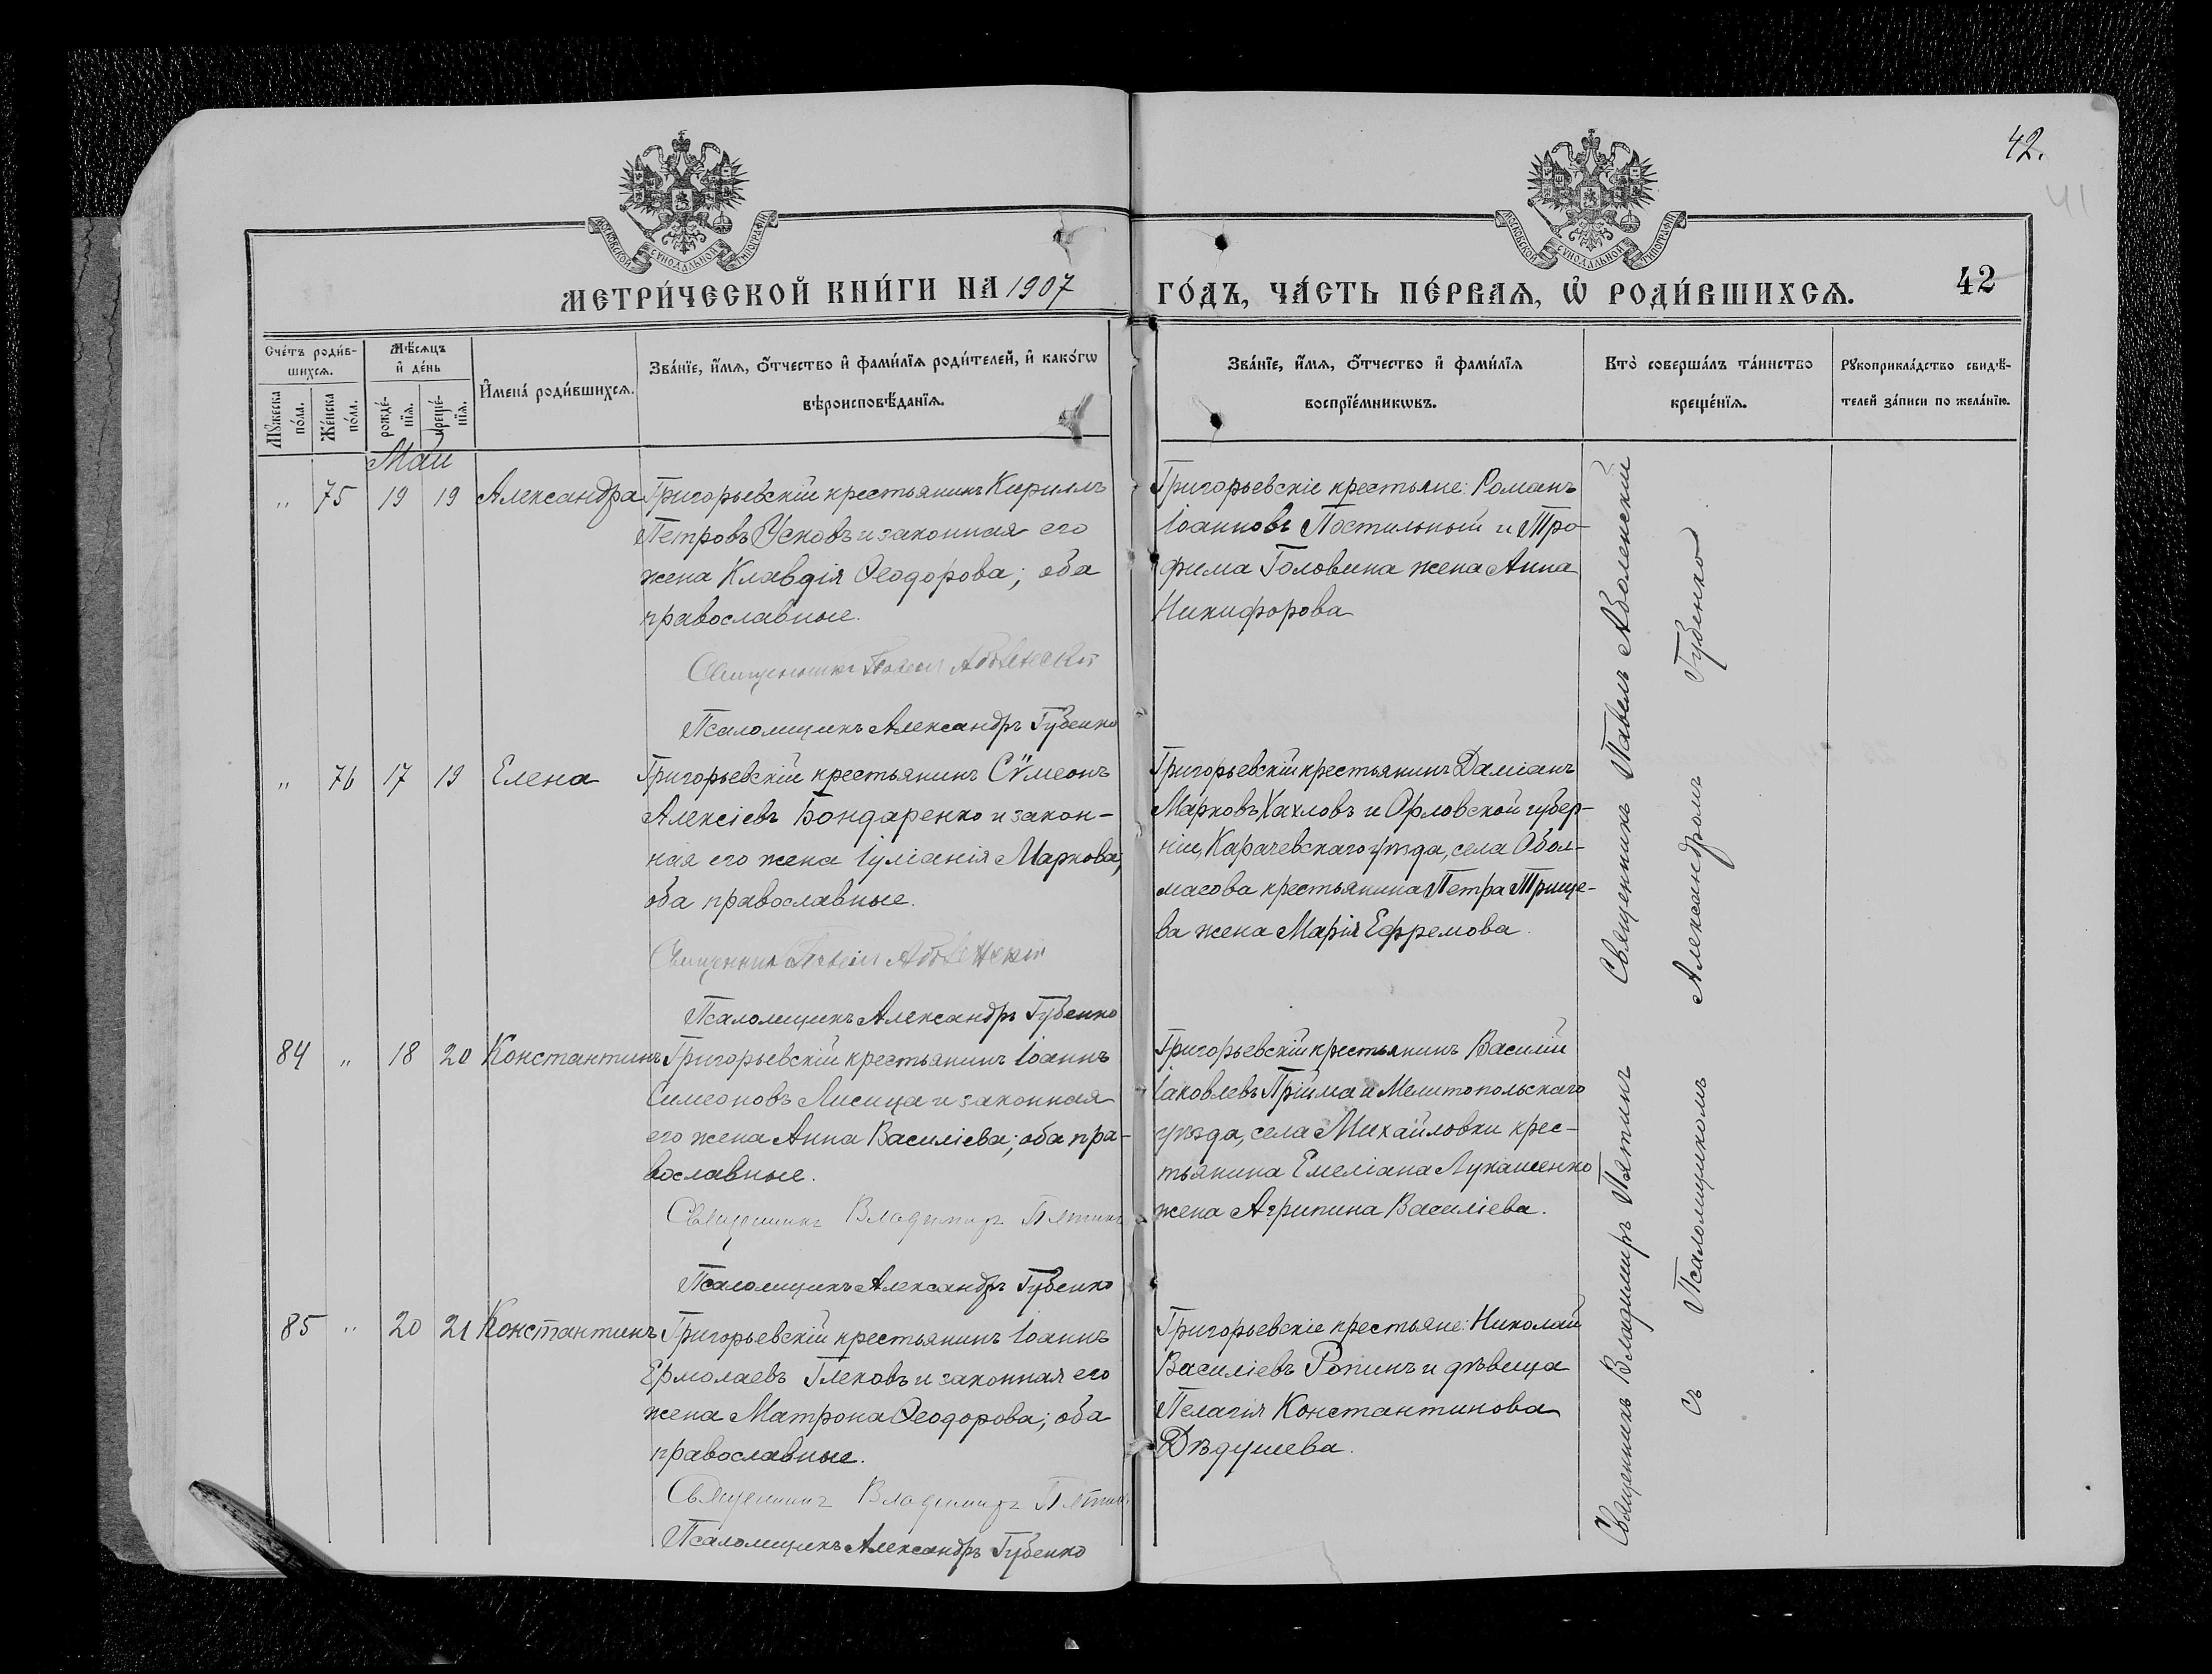 42.
41
МОСКОВСКОЙ СѴНОДАЛЬНОЙ ТИПОГРАФІИ
МОСКОВСКОЙ СѴНОДАЛЬНОЙ ТИПОГРАФІИ
МЕТРИ́ЧЕСКОЙ КНИ́ГИ НА 1907
ГО́ДЪ, ЧА́СТЬ ПЕ́РВАѦ, Ѽ РОДИ́ВШИХСѦ.
42
Сче́тъ роди́в-
шихсѧ.
Мꙋ́жеска по́ла.
Же́нска по́ла.
Мѣ́сѧцъ и҆ де́нь
рожде́-нїѧ.
креще́-нїѧ.
И҆мена́ роди́вшихсѧ.
Зва́нїе, и҆́мѧ, ѻ҆́тчество и҆ фами́лїѧ роди́телей, и҆ како́гѡ
вѣроисповѣ́данїѧ.
Зва́нїе, и҆́мѧ, ѻ҆́тчество и҆ фами́лїѧ
воспрїе́мникѡвъ.
Кто̀ соверша́лъ та́инство
креще́нїѧ.
Рꙋкоприкла́дство свидѣ́-
телей за́писи по жела́нїю.
Май
" 75 19 19 Александра
Григорьевскій крестьянинъ Кириллъ
Петровъ Усковъ и законная его
жена Клавдія Ѳеодорова; оба
православные.
Священникъ Павелъ Аболенскій
Псаломщикъ Александръ Губенко
Григорьевскіе крестьяне: Романъ
Іоанновъ Постильный и Тро-
фима Головина жена Анна
Никифорова
" 76 17 19 Елена
Григорьевскій крестьянинъ Сѵмеонъ
Алексіевъ Бондаренко и закон-
ная его жена Іуліанія Маркова;
оба православные.
Священникъ Павелъ Аболенскій
Псаломщикъ Александръ Губенко
Григорьевскій крестьянинъ Даміанъ
Марковъ Хахловъ и Орловской губер-
ніи, Карачевскаго уѣзда, села Обол-
масова крестьянина Петра Трище-
ва жена Марія Ефремова.
84 " 18 20 Константинъ
Григорьевскій крестьянинъ Іоаннъ
Симеоновъ Лисица и законная
его жена Анна Василіева; оба пра-
вославные.
Священникъ Владимиръ Пятинъ
Псаломщикъ Александръ Губенко
Григорьевскій крестьянинъ Василій
Іаковлевъ Прійма и Мелитопольскаго
уѣзда, села Михайловки крес-
тьянина Емеліана Лукашенко
жена Агрипина Василіева.
85 " 20 21 Константинъ
Григорьевскій крестьянинъ Іоаннъ
Ермолаевъ Глековъ и законная его
жена Матрона Ѳеодорова; оба
православные.
Священникъ Владимиръ Пятинъ
Псаломщикъ Александръ Губенко
Григорьевскіе крестьяне: Николай
Василіевъ Ропинъ и дѣвица
Пелагія Константинова
Дѣдушева.
Священникъ Владимиръ Пятинъ Священникъ Павелъ Аболенскій
съ Псаломщикомъ Александромъ Губенко